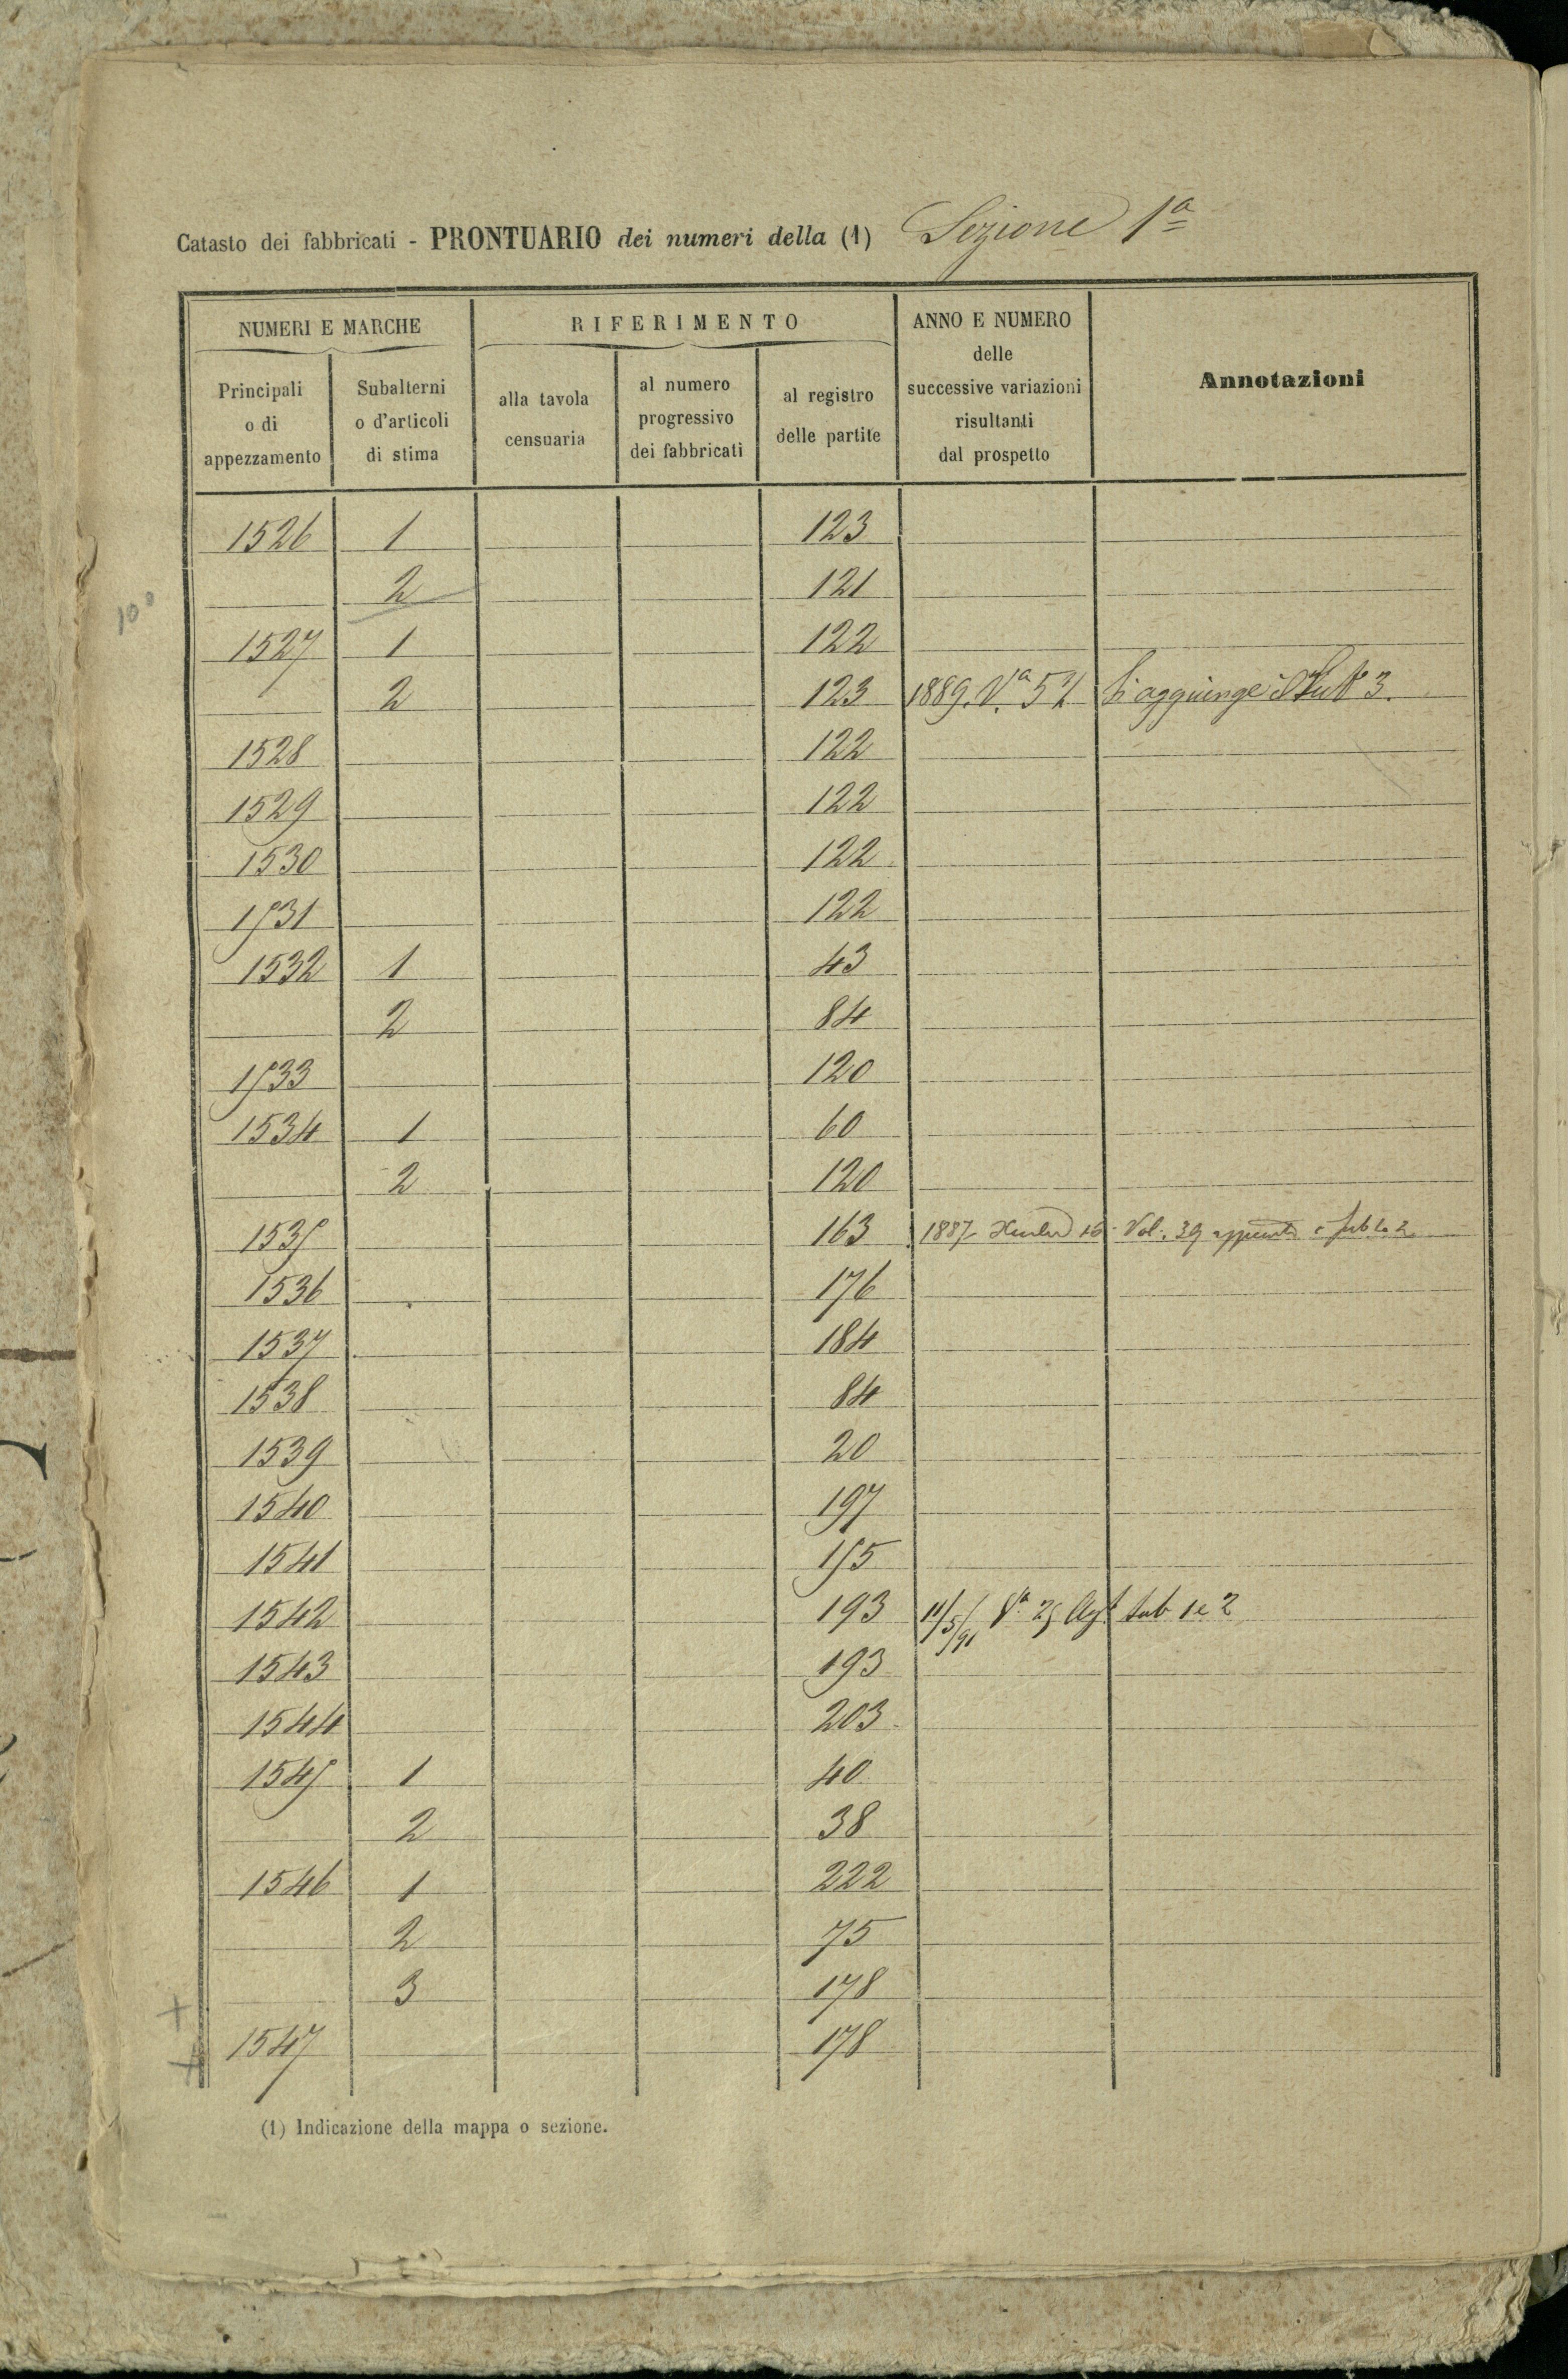 Catasto dei fabbricati - PRONTUARIO dei numeri della (1) Sezione 1ª
NUMERI E MARCHE
RIFERIMENTO
ANNO E NUMERO delle successive variazioni risultanti dal prospetto
Annotazioni
Principali o di appezzamento
Subalterni o d'articoli di stima
alla tavola censuaria
al numero progressivo dei fabbricati
al registro delle partite
1526 1 123
2 121
10°
1527 1 122
2 123 1889. Vª Si aggiunge il Sub 3.
1528 122
1529 122
1530 122
1531 122
1532 1 43
2 84
1533 120
1534 1 60
2 120
1535 163 1887 Vol. 39 sub 1 e 2
1536 176
1537 184
1538 84
1539 20
1540 197
1541 155
1542 193 11/5/91 Vª 25 Agt sub 1 e 2
1543 193
1544 203
1545 1 40
2 38
1546 1 222
2 75
3 178
+
1547 178
+
(1) Indicazione della mappa o sezione.